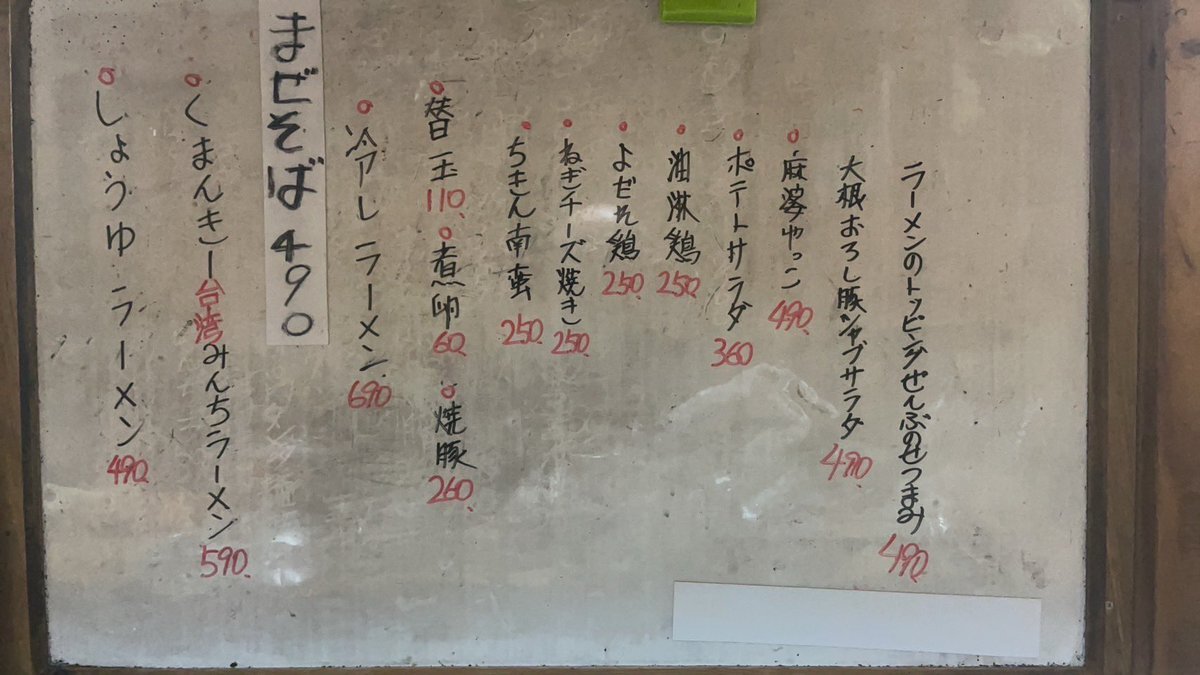 ラーメンのトッピングぜんぶのせつまみ 490
大根おろし豚シャブサラダ 490
麻婆やっこ 490
ポテトサラダ 360
油淋鶏 250
よだれ鶏 250
ねぎチーズ焼き 250
ちきん南蛮 250
替玉 110 煮卵 60 焼豚 260
冷やしラーメン 690
まぜそば 490
くまんきー台湾みんちラーメン 590
しょうゆラーメン 490